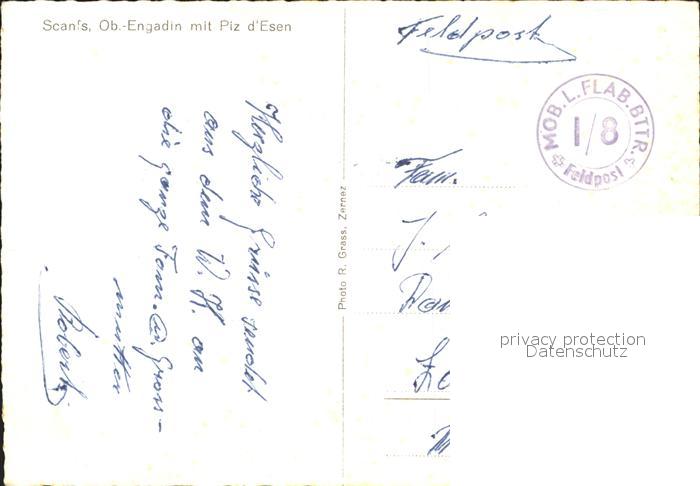 Scanfs, Ob.-Engadin mit Piz d'Esen
Feldpost
MOB.L.FLAB.BTTR.
I/8
Feldpost
Herzliche Grüsse sendet
aus dem W.K. an
die ganze Fam. u. Gross-
mutter
Robert
Photo R. Grass, Zernez
Fam.
J.
privacy protection
Datenschutz